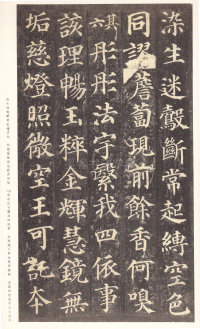 染生迷鷇斷常起縛空色
同謬薝蔔現前餘香何嗅
其六彤彤法宇繫我四依事
該理暢玉粹金輝慧鏡無
垢慈燈照微空王可託本